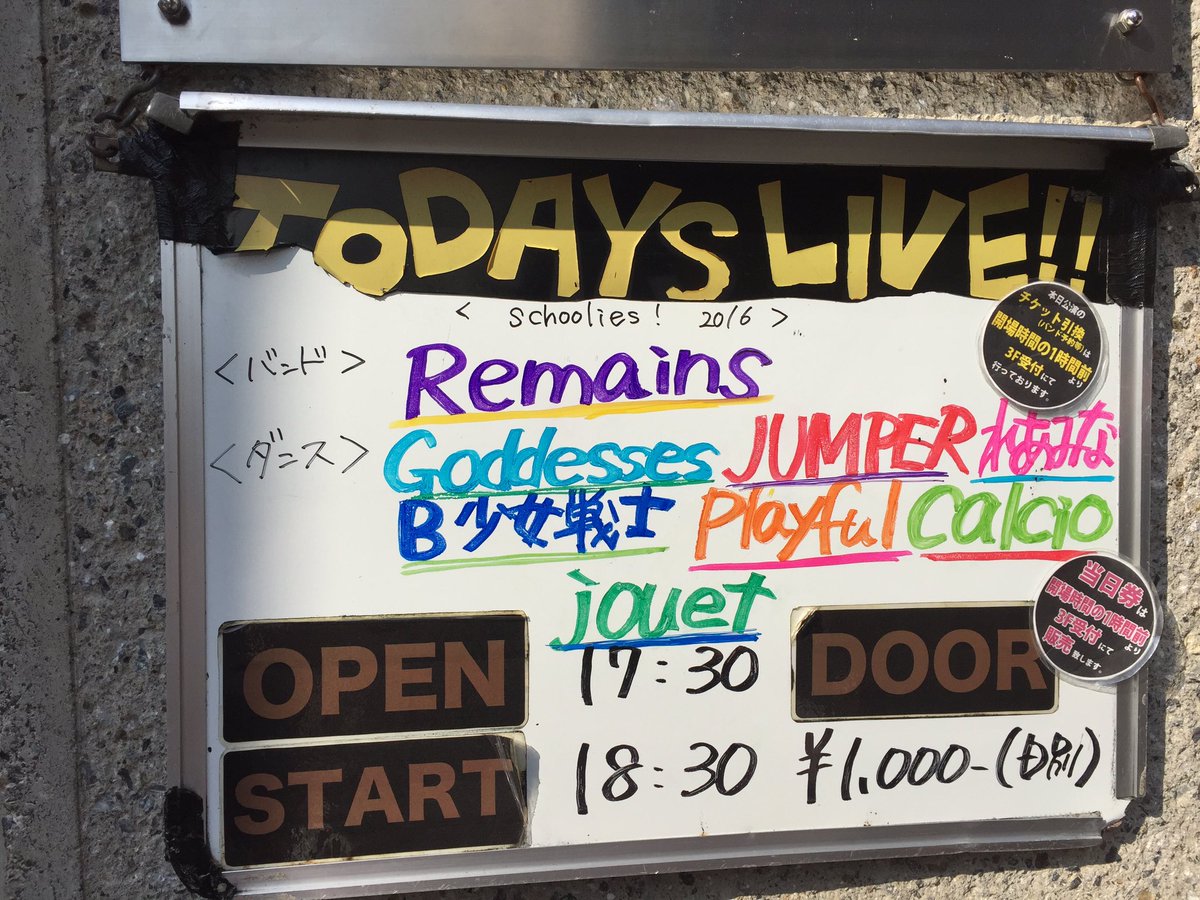 TODAYS LIVE!!
< schoolies! 2016 >
<バンド> Remains
<ダンス> Goddesses JUMPER れあみな
B少女戦士 Playful Calcio
jouet
OPEN 17:30 DOOR
START 18:30 ¥1,000-(D別)
本日公演の
チケット引換
(バンド予約等)は
開場時間の1時間前
より
3F受付にて
行っております。
当日券は
開場時間の1時間前
より
3F受付にて
販売致します。